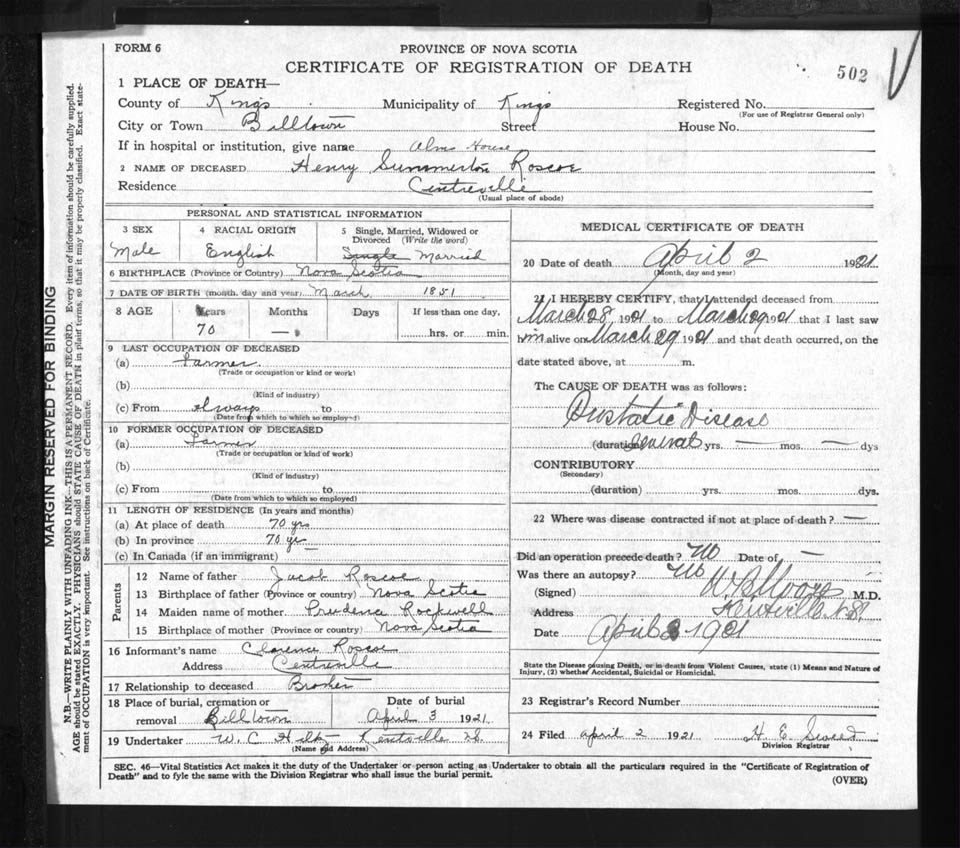 FORM 6
PROVINCE OF NOVA SCOTIA
CERTIFICATE OF REGISTRATION OF DEATH
502
1 PLACE OF DEATH—
County of Kings Municipality of Kings Registered No.
(For use of Registrar General only)
City or Town Billtown Street House No.
If in hospital or institution, give name Alms House
2 NAME OF DECEASED Henry Summerton Roscoe
Residence Centreville
(Usual place of abode)
PERSONAL AND STATISTICAL INFORMATION
3 SEX 4 RACIAL ORIGIN 5 Single, Married, Widowed or Divorced (Write the word)
Male English Single Married
6 BIRTHPLACE (Province or Country) Nova Scotia
7 DATE OF BIRTH (month, day and year) March 1851
8 AGE Years Months Days If less than one day,
70 — hrs. or min.
9 LAST OCCUPATION OF DECEASED
(a) Farmer
(Trade or occupation or kind or work)
(b)
(Kind of industry)
(c) From always to
(Date from which to which so employed)
10 FORMER OCCUPATION OF DECEASED
(a) Farmer
(Trade or occupation or kind of work)
(b)
(Kind of industry)
(c) From to
(Date from which to which so employed)
11 LENGTH OF RESIDENCE (In years and months)
(a) At place of death 70 yrs
(b) In province 70 yrs
(c) In Canada (if an immigrant) —
Parents
12 Name of father Jacob Roscoe
13 Birthplace of father (Province or country) Nova Scotia
14 Maiden name of mother Prudence Rockwell
15 Birthplace of mother (Province or country) Nova Scotia
16 Informant's name Clarence Roscoe
Address Centreville
17 Relationship to deceased Brother
18 Place of burial, cremation or removal Billtown Date of burial April 3 1921
19 Undertaker W. C. Kentville N.S.
(Name and Address)
MEDICAL CERTIFICATE OF DEATH
20 Date of death April 2 1921
(Month, day and year)
21 I HEREBY CERTIFY, that I attended deceased from
March 28, 1921 to March 29 1921 that I last saw
him alive on March 29 1921 and that death occurred, on the
date stated above, at m.
The CAUSE OF DEATH was as follows:
Prostatic Disease
(duration) several yrs. — mos. — dys
CONTRIBUTORY
(Secondary)
(duration) yrs. mos. dys.
22 Where was disease contracted if not at place of death? —
Did an operation precede death? No Date of —
Was there an autopsy? No
(Signed) Moore M.D.
Address Kentville N.S.
Date April 1921
State the Disease causing Death, or in death from Violent Causes, state (1) Means and Nature of
Injury, (2) whether Accidental, Suicidal or Homicidal.
23 Registrar's Record Number
24 Filed April 2 1921 H. E.
Division Registrar
SEC. 46—Vital Statistics Act makes it the duty of the Undertaker or person acting as Undertaker to obtain all the particulars required in the "Certificate of Registration of
Death" and to fyle the same with the Division Registrar who shall issue the burial permit.
(OVER)
MARGIN RESERVED FOR BINDING
N.B.—WRITE PLAINLY WITH UNFADING INK—THIS IS A PERMANENT RECORD. Every item of information should be carefully supplied.
AGE should be stated EXACTLY. PHYSICIANS should STATE CAUSE OF DEATH in plain terms, so that it may be properly classified. Exact state-
ment of OCCUPATION is very important. See instructions on back of Certificate.